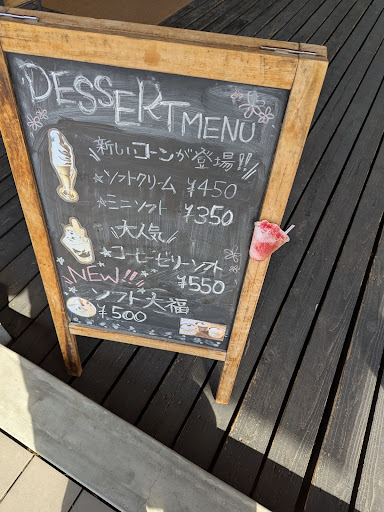 DESSERT MENU
新しいコーンが登場!!
★ソフトクリーム ¥450
★ミニソフト ¥350
大人気
コーヒーゼリーソフト
¥550
NEW!!!
ソフト大福
¥500